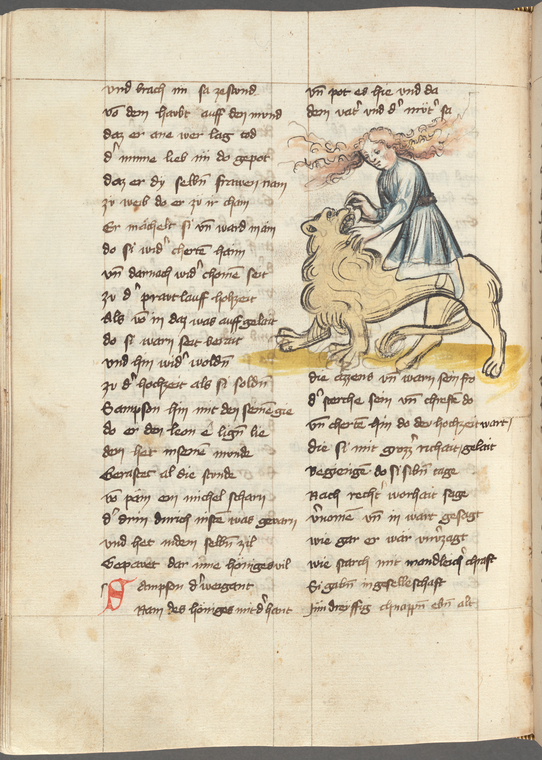 und brach im sa zestund
vō dem haubt auff den mund
daz er ane wer lag tod
d' minne lieb im do gepot
daz er dy selbn̄ frawen nam
zu weib do er zu ir cham
Er mächelt si vn̄ ward ir man
do si wid' chertē haim
vn̄ darnach wid' chome seit
zu d' prawtlauf hohzeit
Als vō in daz was auff geleit
do si warn seit berait
und hin wid' woldn̄
zu d' hochzeit als si soldn̄
Sampson hin mit den sein gie
do er den leon ē lign̄ lie
dem het in seinē munde
Geraster al die stunde
vō pein ein michel scharn
d' drin durich in was gevarn
und het in dem selbn̄ zil
Gepawet dar inne höniges vil
Sampson d' weigant
Nam des höniges mit d' hant
vn̄ pot es hie und da
dem vat' und d' mūt' sa
die azzens vn̄ warn sein fro
d' sterche sein vn̄ chrefte do
vn̄ chertē hin do der hochzeit wart
die si mit grozz' richait gelait
do si sibn̄ tage
Nach recht' worhait sage
v'nomē vn̄ in wart gesagt
wie gar er war vnv'zagt
wie starch mit mandleich' chraft
Si gabn̄ in geselleschaft
Im dreyssig chnappn̄ ebn̄ alt